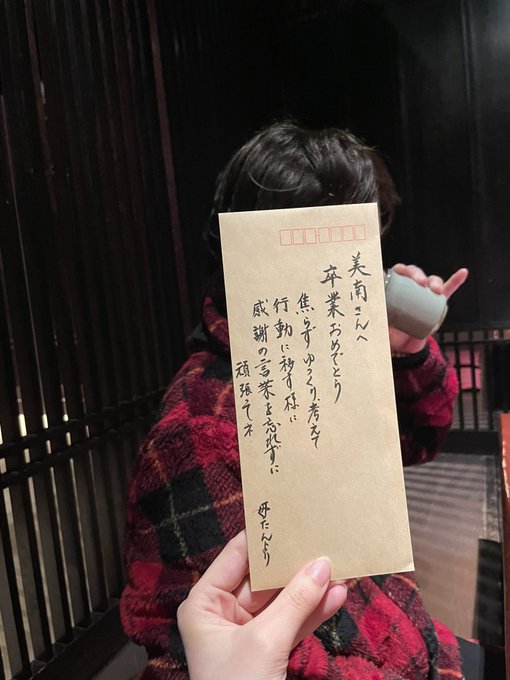 美南さんへ
卒業おめでとう
焦らずゆっくり考えて
行動に移す様に
感謝の言葉を忘れずに
頑張ってネ.
母たんより